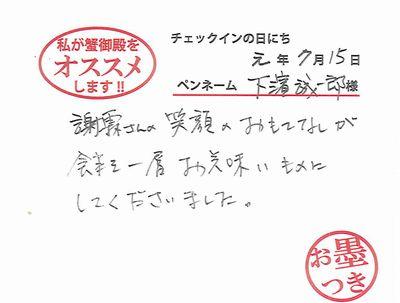 私が蟹御殿を
オススメ
します!!
チェックインの日にち
元年 7月 15日
ペンネーム 下濱誠一郎様
謝霖さんの笑顔のおもてなしが
食事を一層お美味いものに
してくださいました。
お墨
つき